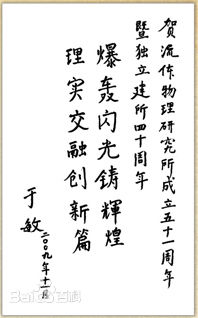 贺流体物理研究所成立五十一周年
暨独立建所四十周年
爆轰闪光铸輝煌
理实交融创新篇
于敏
二〇〇九年十一月
Baidu百科